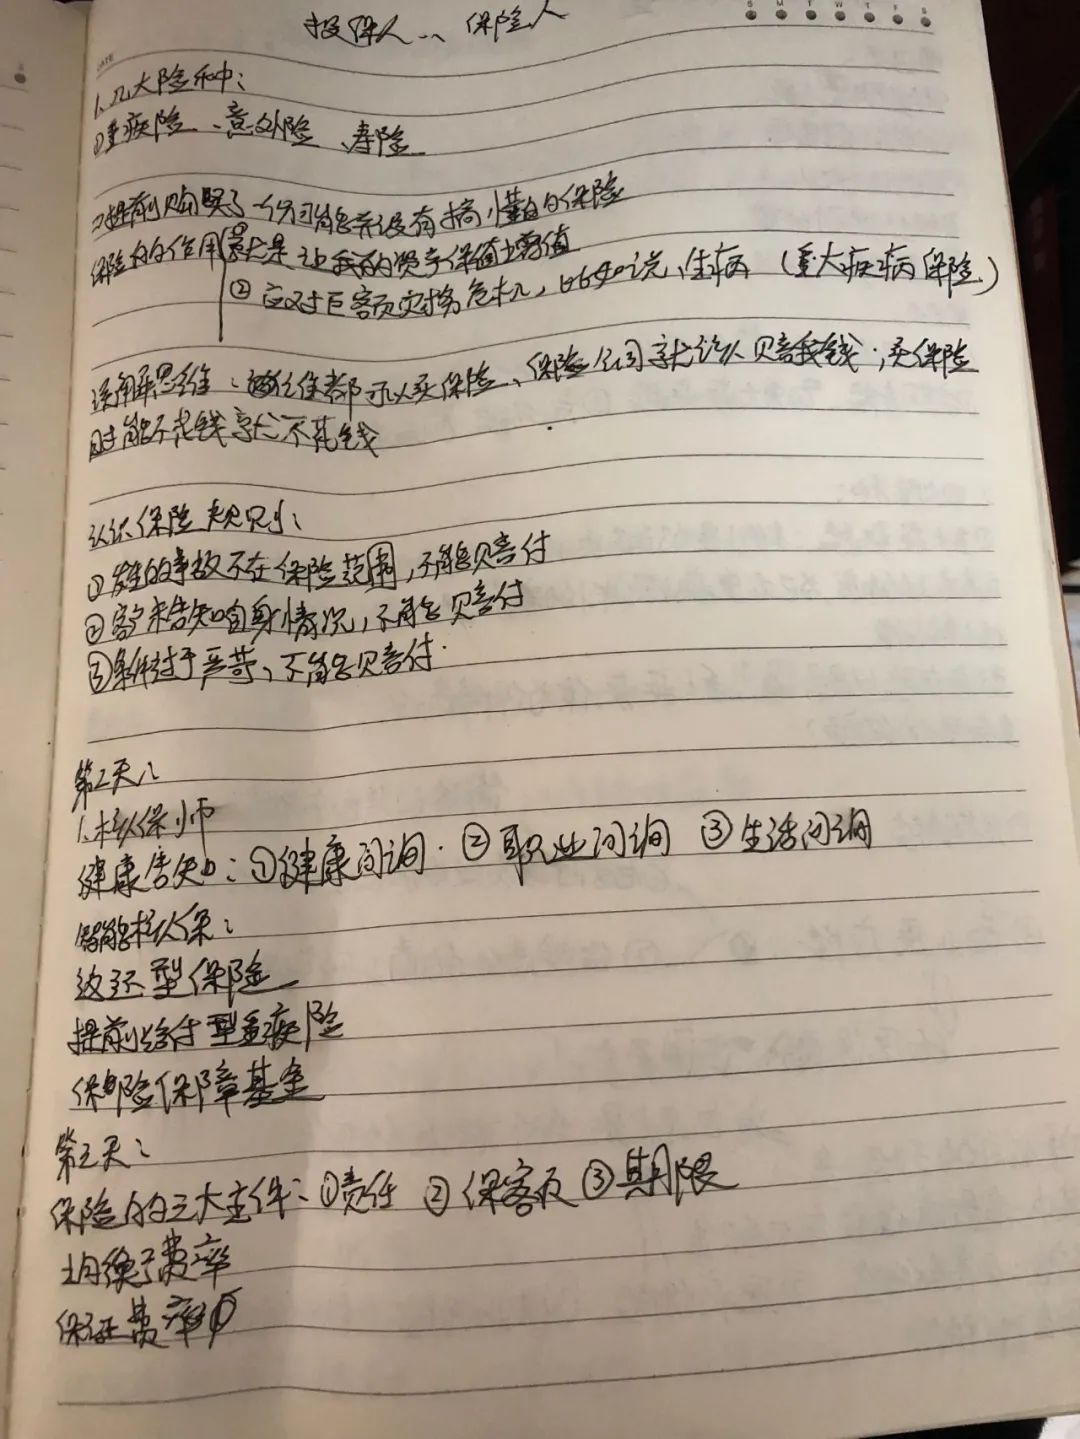 S M T W T F S
DATE
投保人、、保险人
1、几大险种：
①重疾险、意外险、寿险
②提前购买了一份可能并没有搞懂的保险
保险的的作用①就是让我的资产保值增值
②应对巨额灾移危机，比如说，生病（重大疾病保险）
误解思维：往往都以买保险、保险公司就该赔我钱；买保险
时能不花钱就不花钱
认识保险规则：
①发生的事故不在保险范围，不能赔付
②客户未告知自身情况，不能赔付
③条件过于严苛，不能赔付.
第2天、
1.核保师
健康告知：①健康问询.②职业问询 ③生活问询
智能核保：
返还型保险
提前给付型重疾险
保险保障基金
第三天：
保险的三大主件：①责任 ②保额 ③期限
均衡费率
保证费率